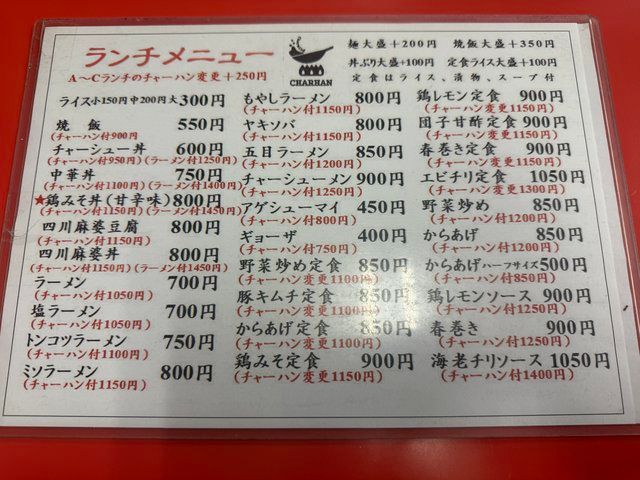 ランチメニュー
A～Cランチのチャーハン変更＋250円
CHARHAN
麺大盛＋200円 焼飯大盛＋350円
丼ぶり大盛＋100円 定食ライス大盛＋100円
定食はライス、漬物、スープ付
ライス小150円中200円大300円
焼飯 550円
(チャーハン付900円
チャーシュー丼 600円
(チャーハン付950円)(ラーメン付1250円)
中華丼 750円
(チャーハン付1100円)(ラーメン付1400円)
★鶏みそ丼(甘辛味)800円
(チャーハン付1150円)(ラーメン付1450円)
四川麻婆豆腐 800円
(チャーハン付1150円)
四川麻婆丼 800円
(チャーハン付1150円)(ラーメン付1450円)
ラーメン 700円
(チャーハン付1050円)
塩ラーメン 700円
(チャーハン付1050円)
トンコツラーメン 750円
(チャーハン付1100円)
ミソラーメン 800円
(チャーハン付1150円)
もやしラーメン 800円
(チャーハン付1150円)
ヤキソバ 800円
(チャーハン付1150円)
五目ラーメン 850円
(チャーハン付1200円)
チャーシューメン 900円
(チャーハン付1250円)
アゲシューマイ 450円
(チャーハン付800円)
ギョーザ 400円
(チャーハン付750円)
野菜炒め定食 850円
(チャーハン変更1100円)
豚キムチ定食 850円
(チャーハン変更1100円)
からあげ定食 850円
(チャーハン変更1100円)
鶏みそ定食 900円
(チャーハン変更1150円)
鶏レモン定食 900円
(チャーハン変更1150円)
団子甘酢定食 900円
(チャーハン変更1150円)
春巻き定食 900円
(チャーハン変更1150円)
エビチリ定食 1050円
(チャーハン変更1300円)
野菜炒め 850円
(チャーハン付1200円)
からあげ 850円
(チャーハン付1200円)
からあげハーフサイズ500円
(チャーハン付850円)
鶏レモンソース 900円
(チャーハン付1250円)
春巻き 900円
(チャーハン付1250円)
海老チリソース 1050円
(チャーハン付1400円)